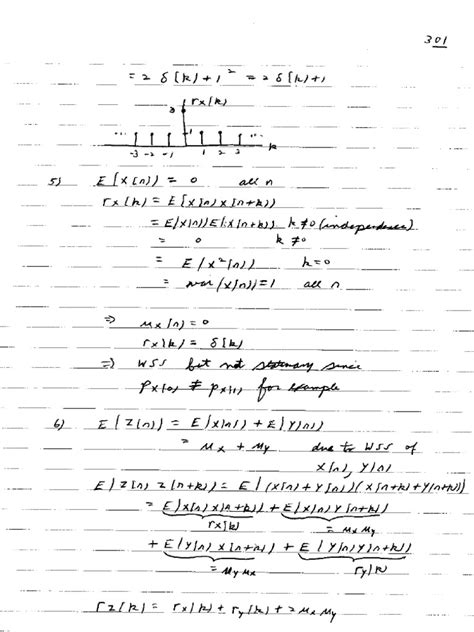 301
= 2 δ[k] + 1² = 2 δ[k] + 1
rx[k]
3
... 1 ...
-3 -2 -1 1 2 3 k
5) E[X[n]] = 0 all n
rx[k] = E[X[n]X[n+k]]
= E[X[n]]E[X[n+k]] k≠0 (independence)
= 0 k≠0
= E[X²[n]] k=0
= var(X[n]) = 1 all n
⇒ μx[n] = 0
rx[k] = δ[k]
⇒ WSS but not stationary since
px[0] ≠ px[1] for example
6) E[Z[n]] = E[X[n]] + E[Y[n]]
= μx + μy due to WSS of
X[n], Y[n]
E[Z[n] Z[n+k]] = E[(X[n]+Y[n])(X[n+k]+Y[n+k])]
= E[X[n]X[n+k]] + E[X[n]Y[n+k]]
rx[k] = μxμy
+ E[Y[n]X[n+k]] + E[Y[n]Y[n+k]]
= μyμx ry[k]
rz[k] = rx[k] + ry[k] + 2μxμy